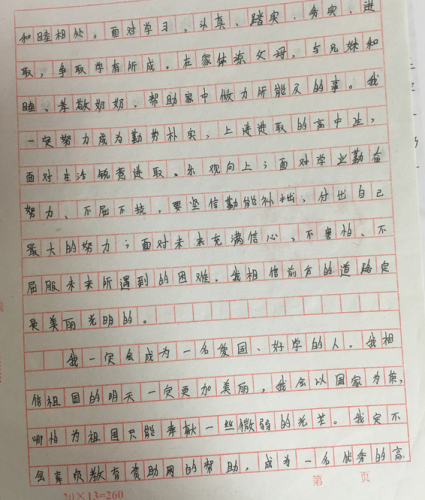 和睦相处。面对学习,认真、踏实、务实、进
取,争取学有所成。在家体谅父母,与兄妹和
睦、孝敬奶奶,帮助家中做力所能及的事。我
一定努力成为勤劳朴实,上进进取的高中生,
面对生活锐意进取、乐观向上;面对学业勤奋
努力、不屈不挠,要坚信勤能补拙,付出自己
最大的努力;面对未来充满信心,不畏怕、不
屈服未来所遇到的困难。我相信前方的道路定
是美丽光明的。
我一定会成为一名爱国、好学的人。我相
信祖国的明天一定更加美丽,我会以国家为荣,
哪怕为祖国只能奉献一丝微弱的光芒。我定不
会辜负教育资助网的帮助,成为一名优秀的高
20×13=260
第 页